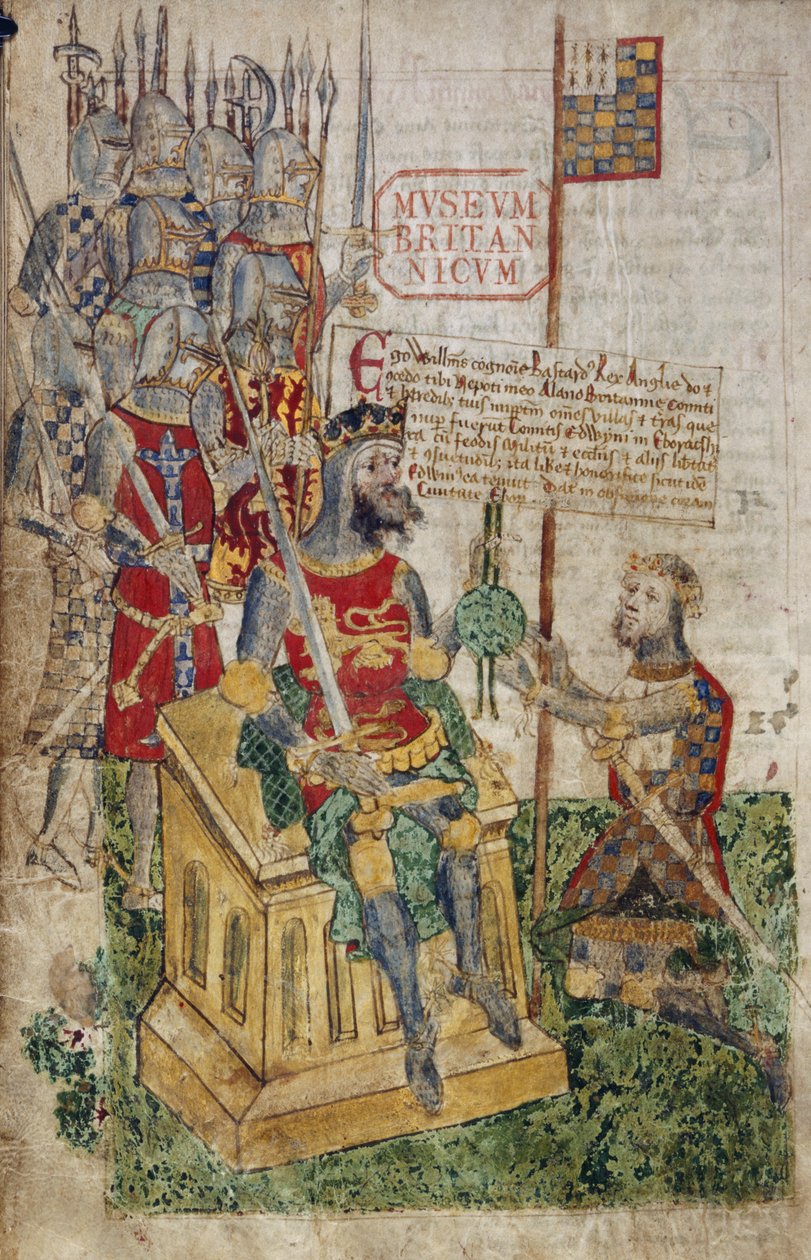 MVSEVM
BRITAN
NICVM
Ego Willms cognoie Bastard Rex Anglie do &
ocedo tibi Nepoti meo Alano Britannie Comiti
& heredib tuis imppm omes villas & tras que
nup fuerut Comitis Edwyni in Eboracshi
ra cu feodis militu & eccliis & aliis libtat
& osuetudib; ita libe & honorifice sicut ide
Edwin ea tenuit Dat in obsidione coram
Civitate Ebor